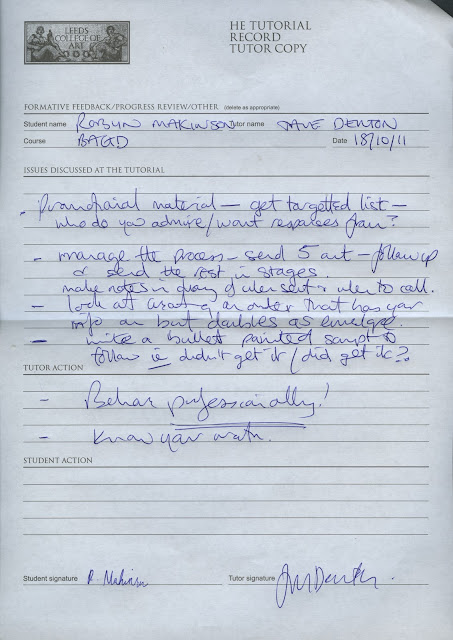 LEEDS
COLLEGE OF
ART
HE TUTORIAL
RECORD
TUTOR COPY
FORMATIVE FEEDBACK/PROGRESS REVIEW/OTHER (delete as appropriate)
Student name ROBYN MAKINSON Tutor name DAVE DENTON
Course BAGD Date 18/10/11
ISSUES DISCUSSED AT THE TUTORIAL
- Promotional material – get targetted list –
who do you admire/want responses from?
- manage the process – send 5 out – follow up
& send the rest in stages.
make notes in diary of when sent & when to call.
- look at creating an outer that has your
info on but doubles as envelope.
- write a bullet pointed script to
follow ie didn't get it / did get it?
TUTOR ACTION
- Behave professionally!
- Know your worth.
STUDENT ACTION
Student signature R Makinson Tutor signature